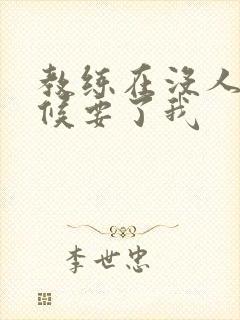 教练在没人
候要了我
李世忠